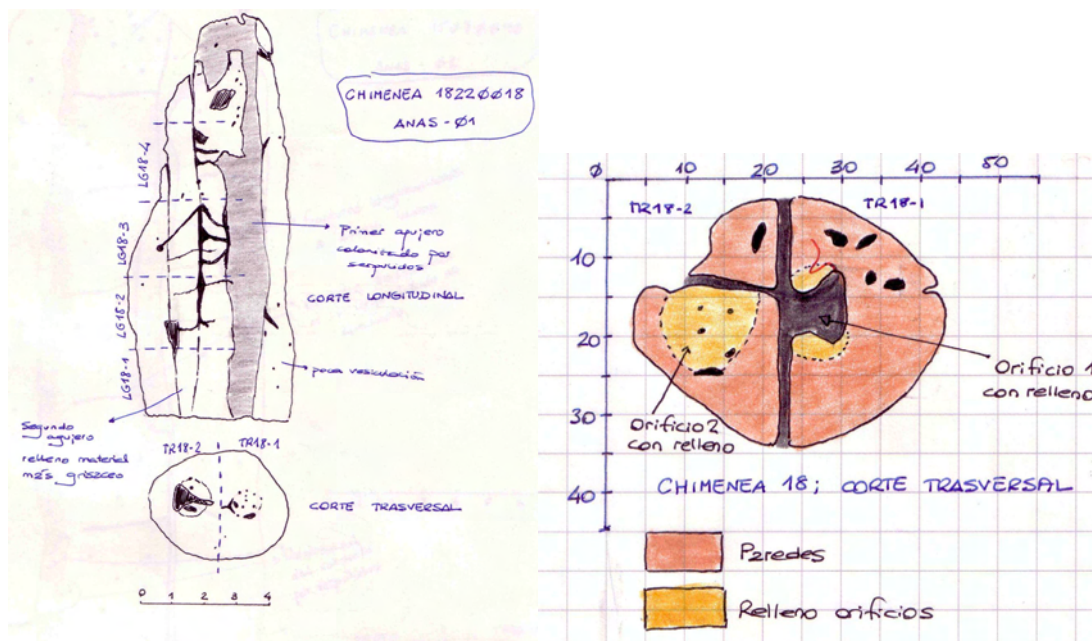 CHIMENEA 1822ØØ18
ANAS-Ø1
LG18-4
LG18-3
LG18-2
LG18-1
Primer agujero
colonizado por
serpulidos
CORTE LONGITUDINAL
poca vesiculación
Segundo
agujero
relleno material
más grisáceo
TR18-2
TR18-1
CORTE TRASVERSAL
0 1 2 3 4
Ø 10 20 30 40 50
TR18-2
TR18-1
10
20
30
40
Orificio 1
con relleno
Orificio 2
con relleno
CHIMENEA 18; CORTE TRASVERSAL
Paredes
Relleno orificios